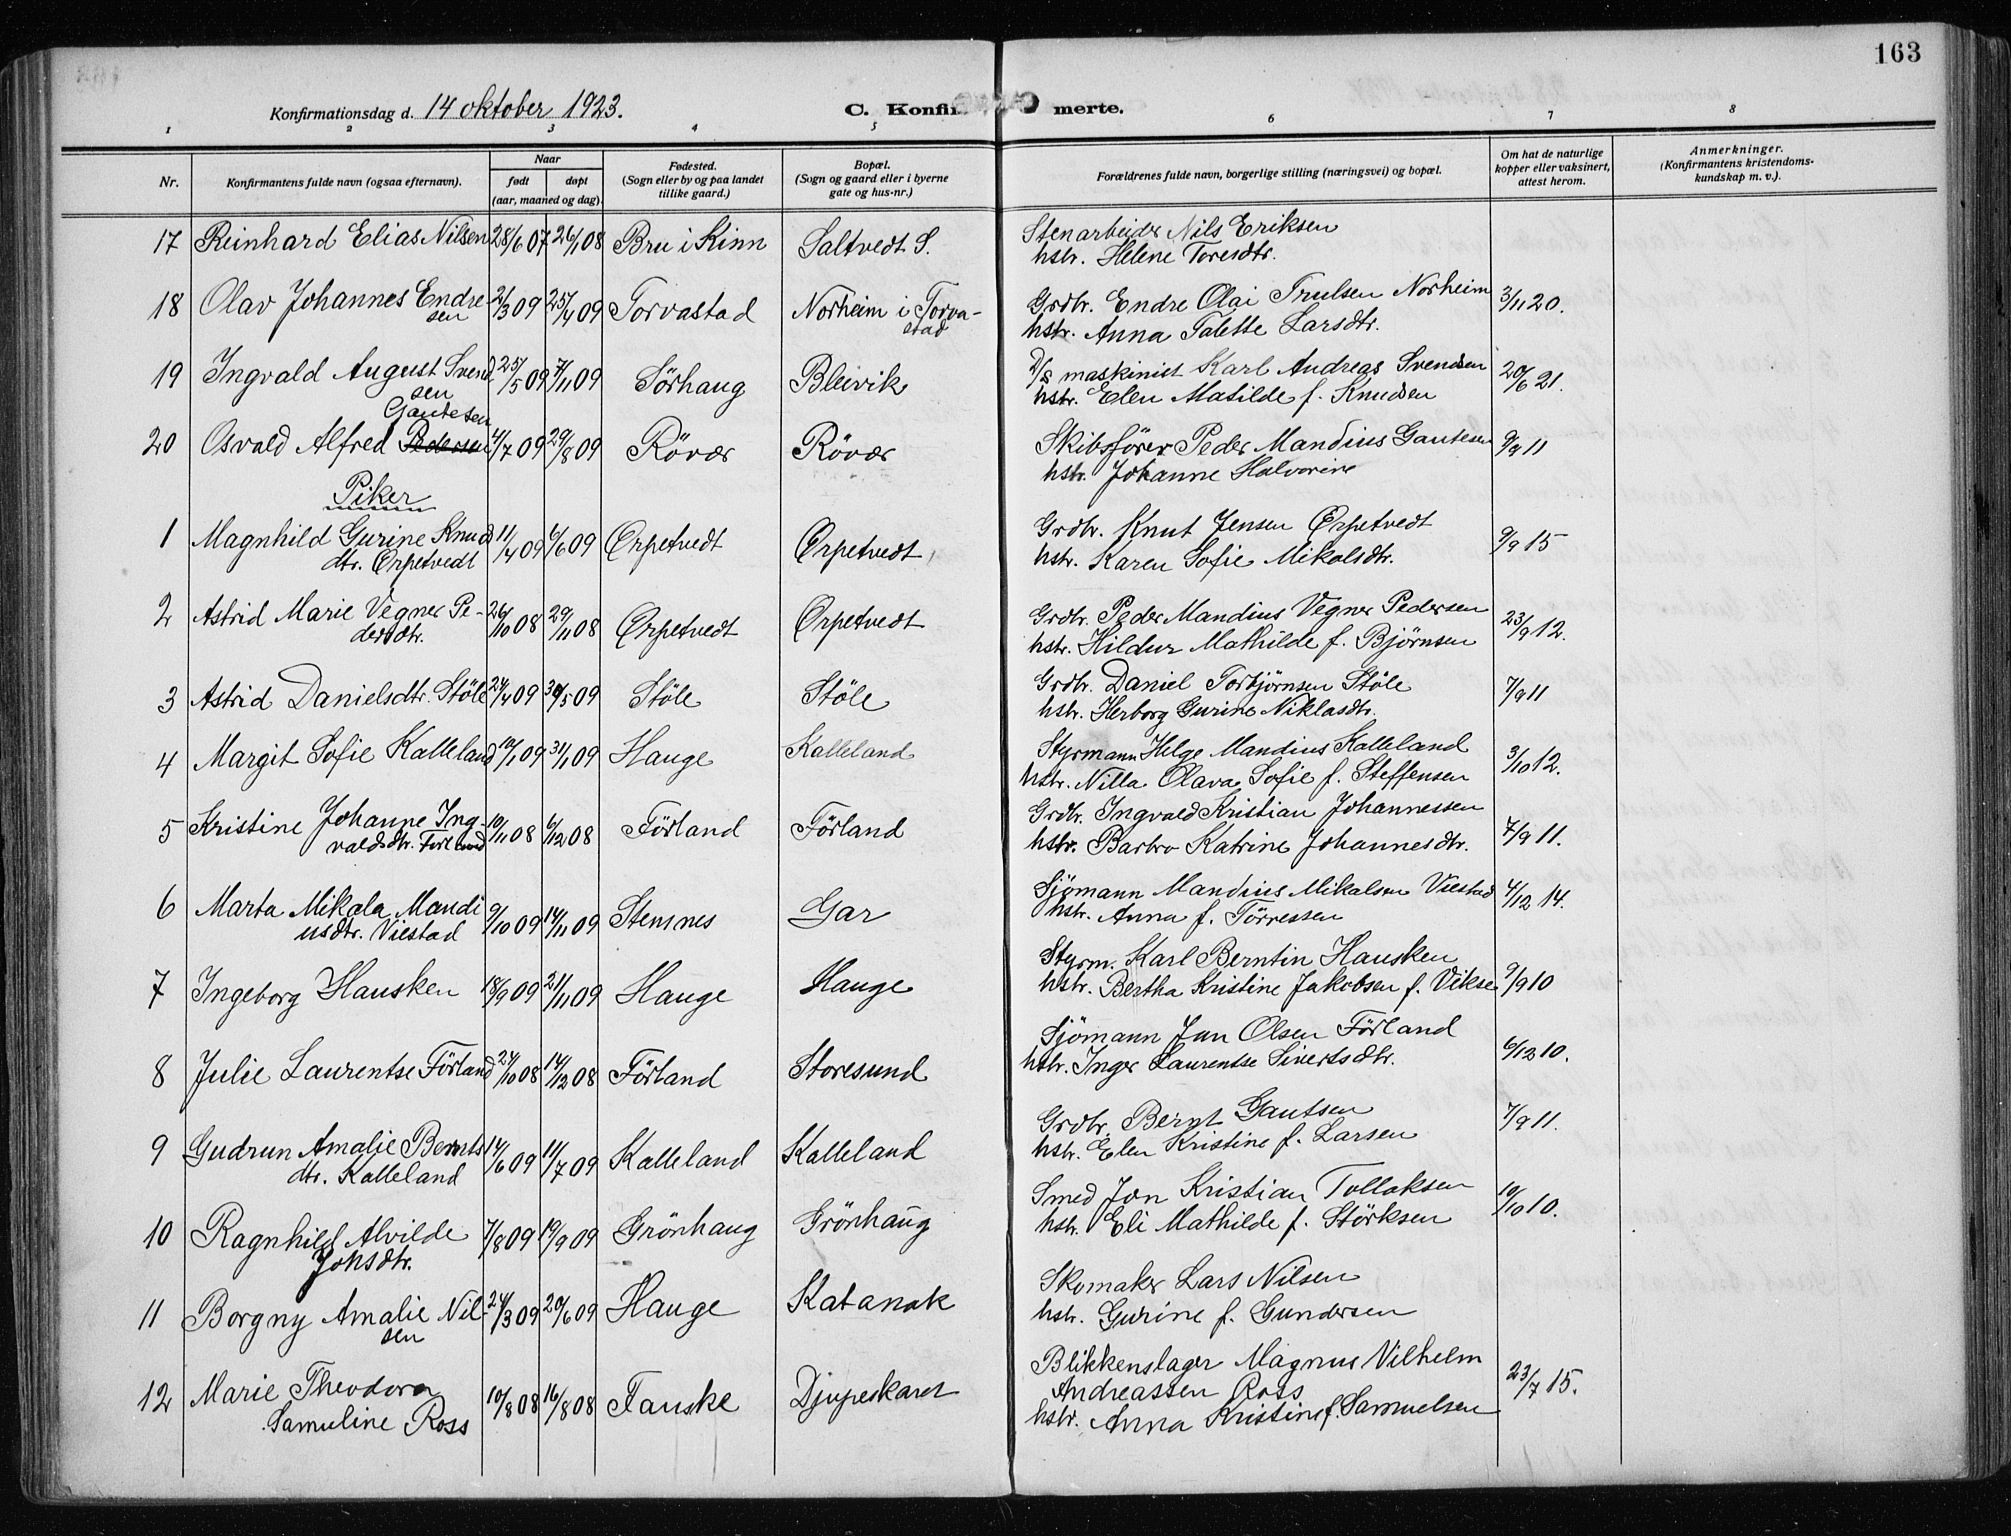 163
Konfirmationsdag d. 14 oktober 1923. C. Konfirmerte.
1 2 3 4 5 6 7 8
Nr. Konfirmantens fulde navn (ogsaa efternavn). Naar født døpt (aar, maaned og dag). Fødested. (Sogn eller by og paa landet tillike gaard.) Bopæl. (Sogn og gaard eller i byerne gate og hus-nr.) Forældrenes fulde navn, borgerlige stilling (næringsvei) og bopæl. Om hat de naturlige kopper eller vaksinert, attest herom. Anmerkninger. (Konfirmantens kristendoms-kundskap m. v.).
17 Reinhard Elias Nilsen 28/6 07 26/1 08 Bru i Kinn Saltvedt S. Stenarbeider Nils Eriksen
hstr. Helene Toresdtr.
18 Olav Johannes Endre- 2/3 09 25/4 09 Torvastad Norheim i Torva- Grdbr. Endre Olai Trulsen Norheim 3/11 20.
sen stad hstr. Anna Talette Larsdtr.
19 Ingvald August Svend- 25/5 09 7/11 09 Sörhaug Bleivik D/S maskinist Karl Andreas Svendsen 20/6 21.
sen hstr. Elen Matilde f. Knudsen
Gautesen
20 Osvald Alfred Pedersen 4/7 09 29/8 09 Rövær Rövær Skibsförer Peder Mandius Gautesen 9/9 11
hstr. Johanne Halvorine
Piker
1 Magnhild Gurine Knud 11/4 09 6/6 09 Ørpetvedt Ørpetvedt Grdbr. Knut Jensen Ørpetvedt 9/9 15
dtr. Ørpetvedt hstr. Karen Sofie Mikalsdtr.
2 Astrid Marie Vegner Pe- 26/10 08 29/11 08 Ørpetvedt Ørpetvedt Grdbr. Peder Mandius Vegner Pedersen 23/9 12.
dersdtr. hstr. Hildur Mathilde f. Björnsen
3 Astrid Danielsdtr. Stöle 24/4 09 30/5 09 Stöle Stöle Grdbr. Daniel Torbjörnsen Stöle 7/9 11
hstr. Herborg Gurine Niklasdtr.
4 Margit Sofie Kalleland 10/1 09 31/1 09 Hauge Kalleland Styrmann Helge Mandius Kalleland 3/10 12.
hstr. Nilla Olava Sofie f. Steffensen
5 Kristine Johanne Ing- 10/11 08 6/12 08 Förland Förland Grdbr. Ingvald Kristian Johannessen 7/9 11.
valdsdtr. Förland hstr. Barbro Katrine Johannesdtr.
6 Marta Mikala Mandi 9/10 09 14/11 09 Stemnes Gar Sjömann Mandius Mikalsen Viestad 4/12 14.
usdtr. Viestad hstr. Anna f. Törressen
7 Ingeborg Hausken 18/9 09 21/11 09 Hauge Hauge Styrm. Karl Berntin Hausken 9/9 10
hstr. Bertha Kristine Jakobsen f. Vikse
8 Julie Laurentse Förland 24/10 08 14/12 08 Förland Storesund Sjömann Jan Olsen Förland 6/12 10.
hstr. Inger Laurentse Sivertsdtr.
9 Gudrun Amalie Bernts 14/6 09 11/7 09 Kalleland Kalleland Grdbr. Bernt Gautsen 7/9 11.
dtr. Kalleland hstr. Elen Kristine f. Larsen
10 Ragnhild Alvilde 7/8 09 19/9 09 Grönhaug Grönhaug Smed Jon Kristian Tollaksen 10/10 10.
Johsdtr. hstr. Eli Mathilde f. Störksen
11 Borgny Amalie Nil- 24/3 09 20/6 09 Hauge Katanak Skomaker Lars Nilsen
sen hstr. Gurine f. Gundersen
12 Marie Theodora 10/8 08 16/8 08 Fauske Djupeskaret Blikkenslager Magnus Vilhelm 23/7 15.
Samuline Ross Andreassen Ross
hstr. Anna Kristine f. Samuelsen